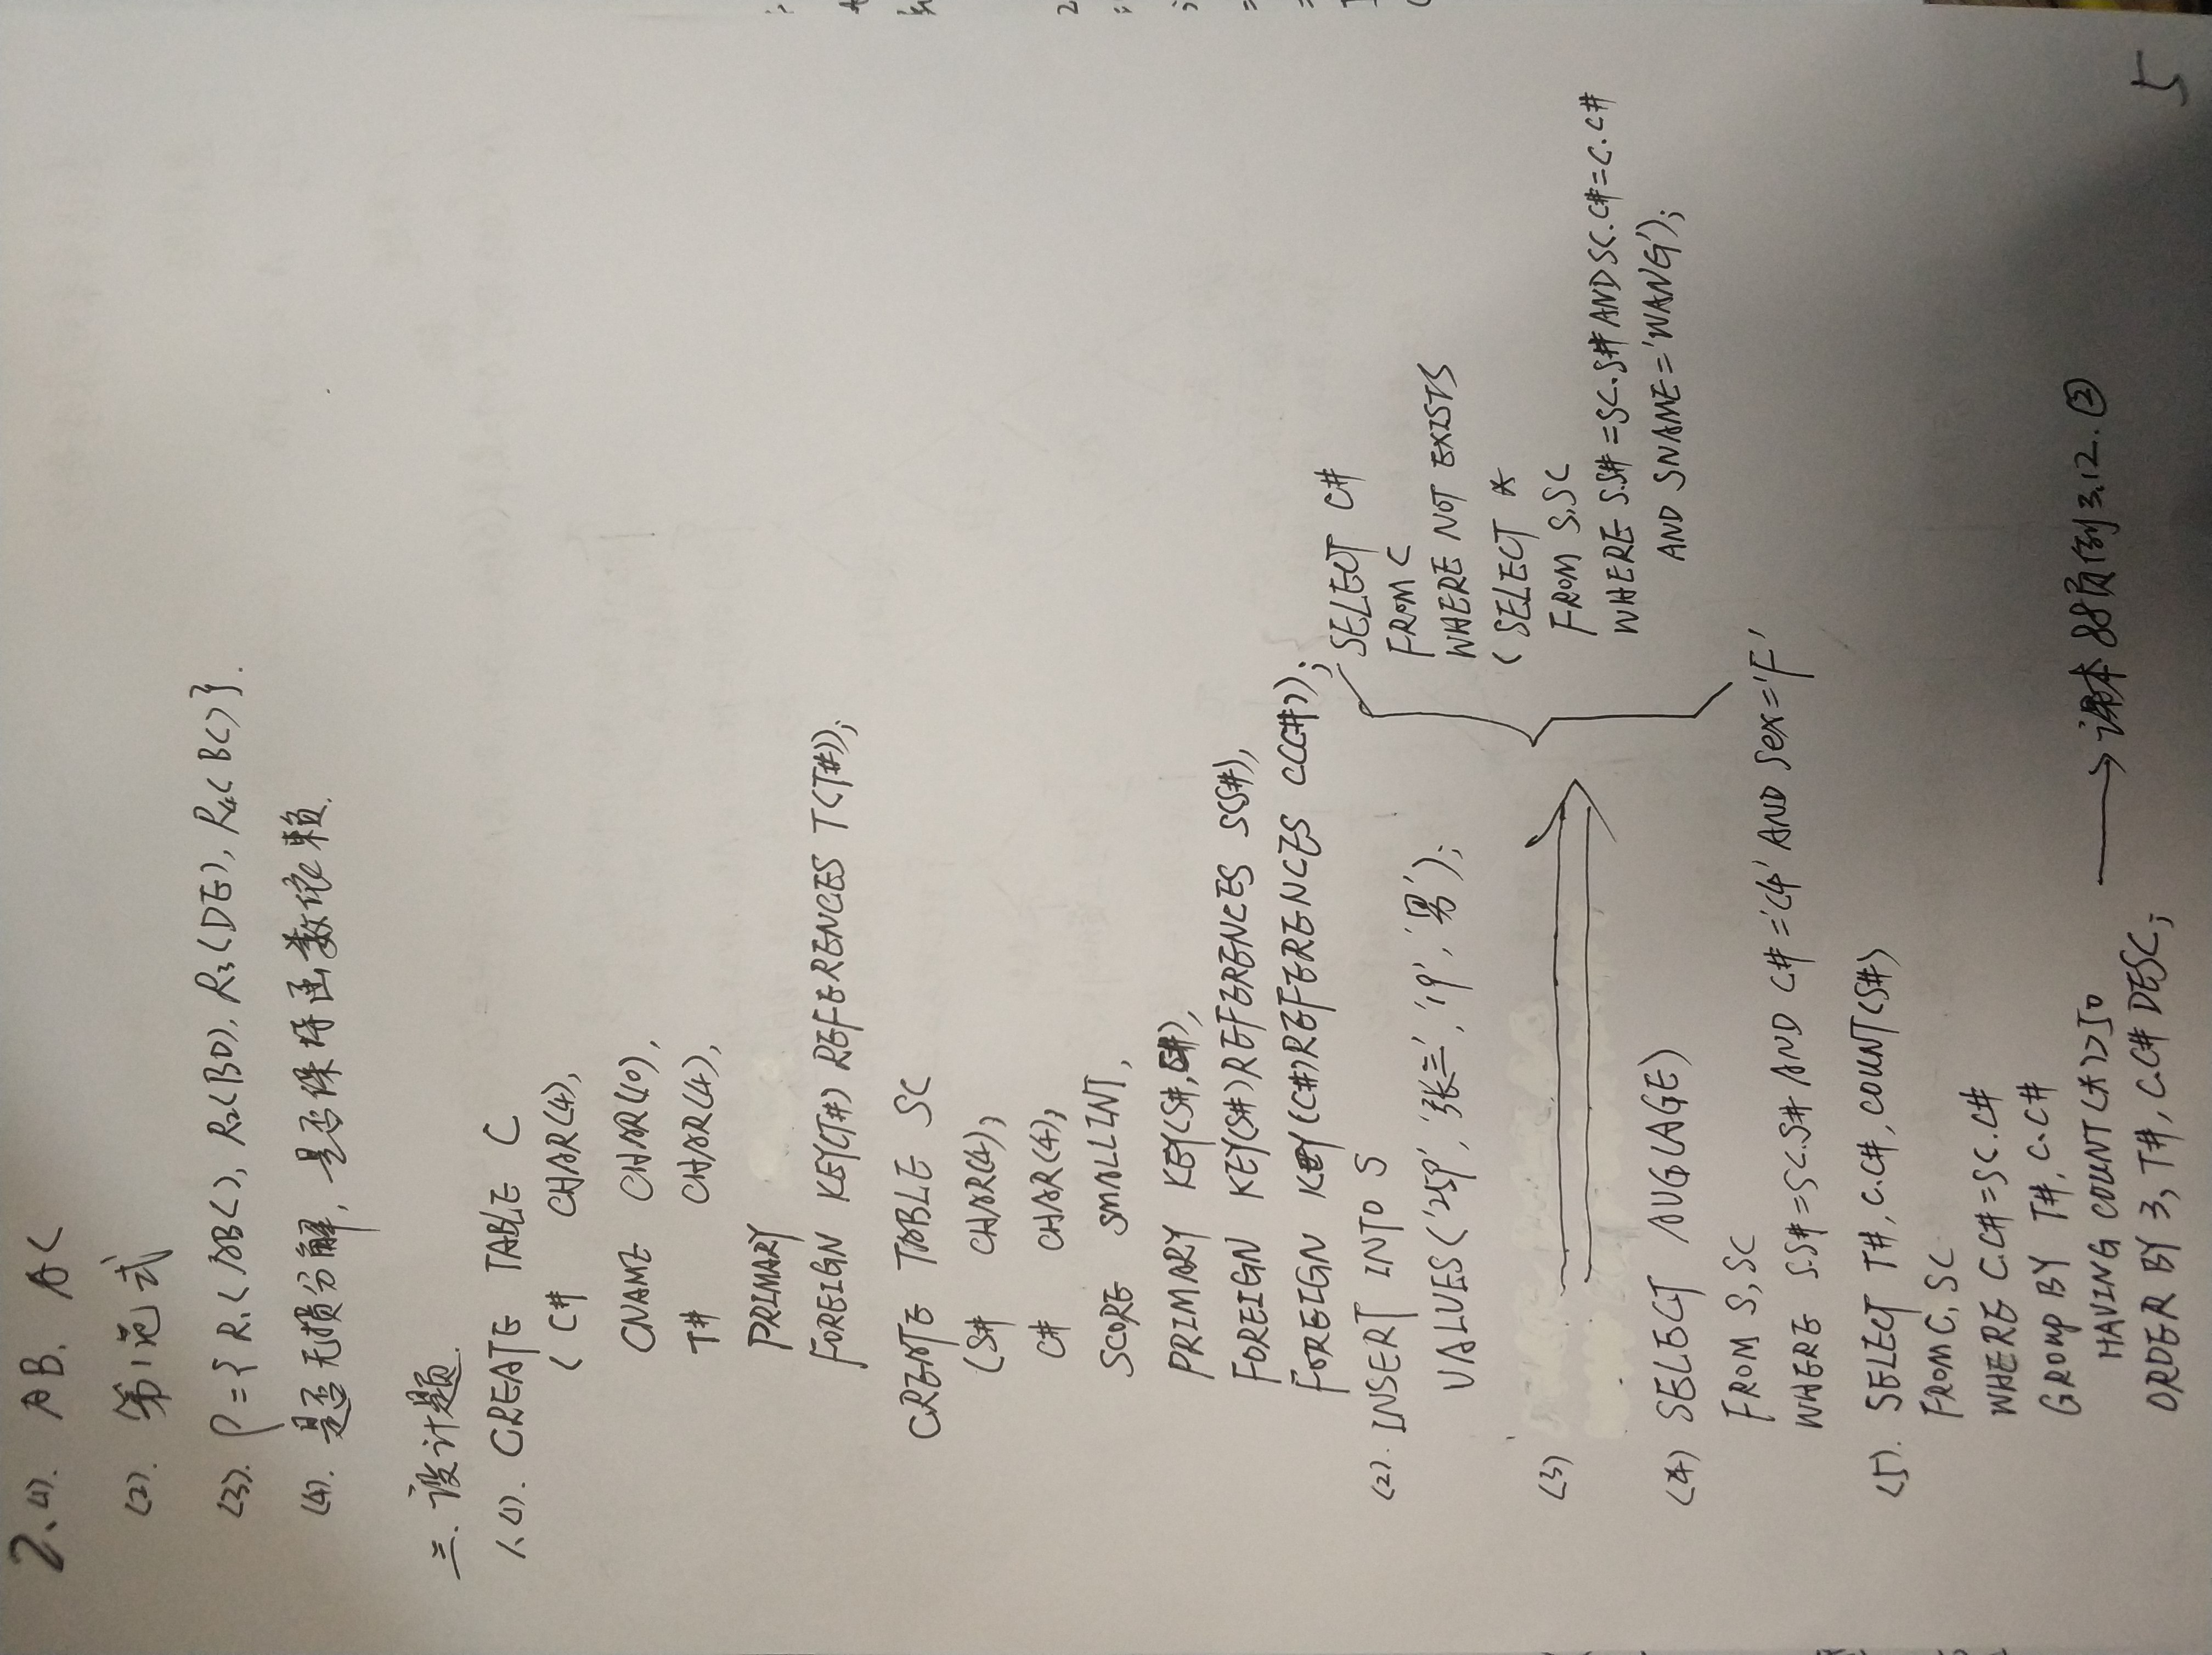 2、(1). AB. AC
(2). 第1范式
(3). ρ={ R1(ABC), R2(BD), R3(DE), R4(BC)}.
(4). 是否无损分解, 是否保持函数依赖.
三. 设计题.
1、(1). CREATE TABLE C
( C# CHAR(4),
CNAME CHAR(10),
T# CHAR(4),
PRIMARY
FOREIGN KEY(T#) REFERENCES T(T#));
CREATE TABLE SC
(S# CHAR(4),
C# CHAR(4),
SCORE SMALLINT,
PRIMARY KEY(S#,C#),
FOREIGN KEY(S#)REFERENCES S(S#),
FOREIGN KEY(C#)REFERENCES C(C#));
(2). INSERT INTO S
VALUES('259','张三','19','男');
(3)
SELECT C#
FROM C
WHERE NOT EXISTS
( SELECT *
FROM S,SC
WHERE S.S#=SC.S# AND SC.C#=C.C#
AND SNAME='WANG');
(4) SELECT AVG(AGE)
FROM S,SC
WHERE S.S#=SC.S# AND C#='C4' AND Sex='F'
(5). SELECT T#, C.C#, COUNT(S#)
FROM C, SC
WHERE C.C#=SC.C#
GROUP BY T#, C.C#
HAVING COUNT(*)>50 → 课本88页例3.12.②
ORDER BY 3, T#, C.C# DESC;
5